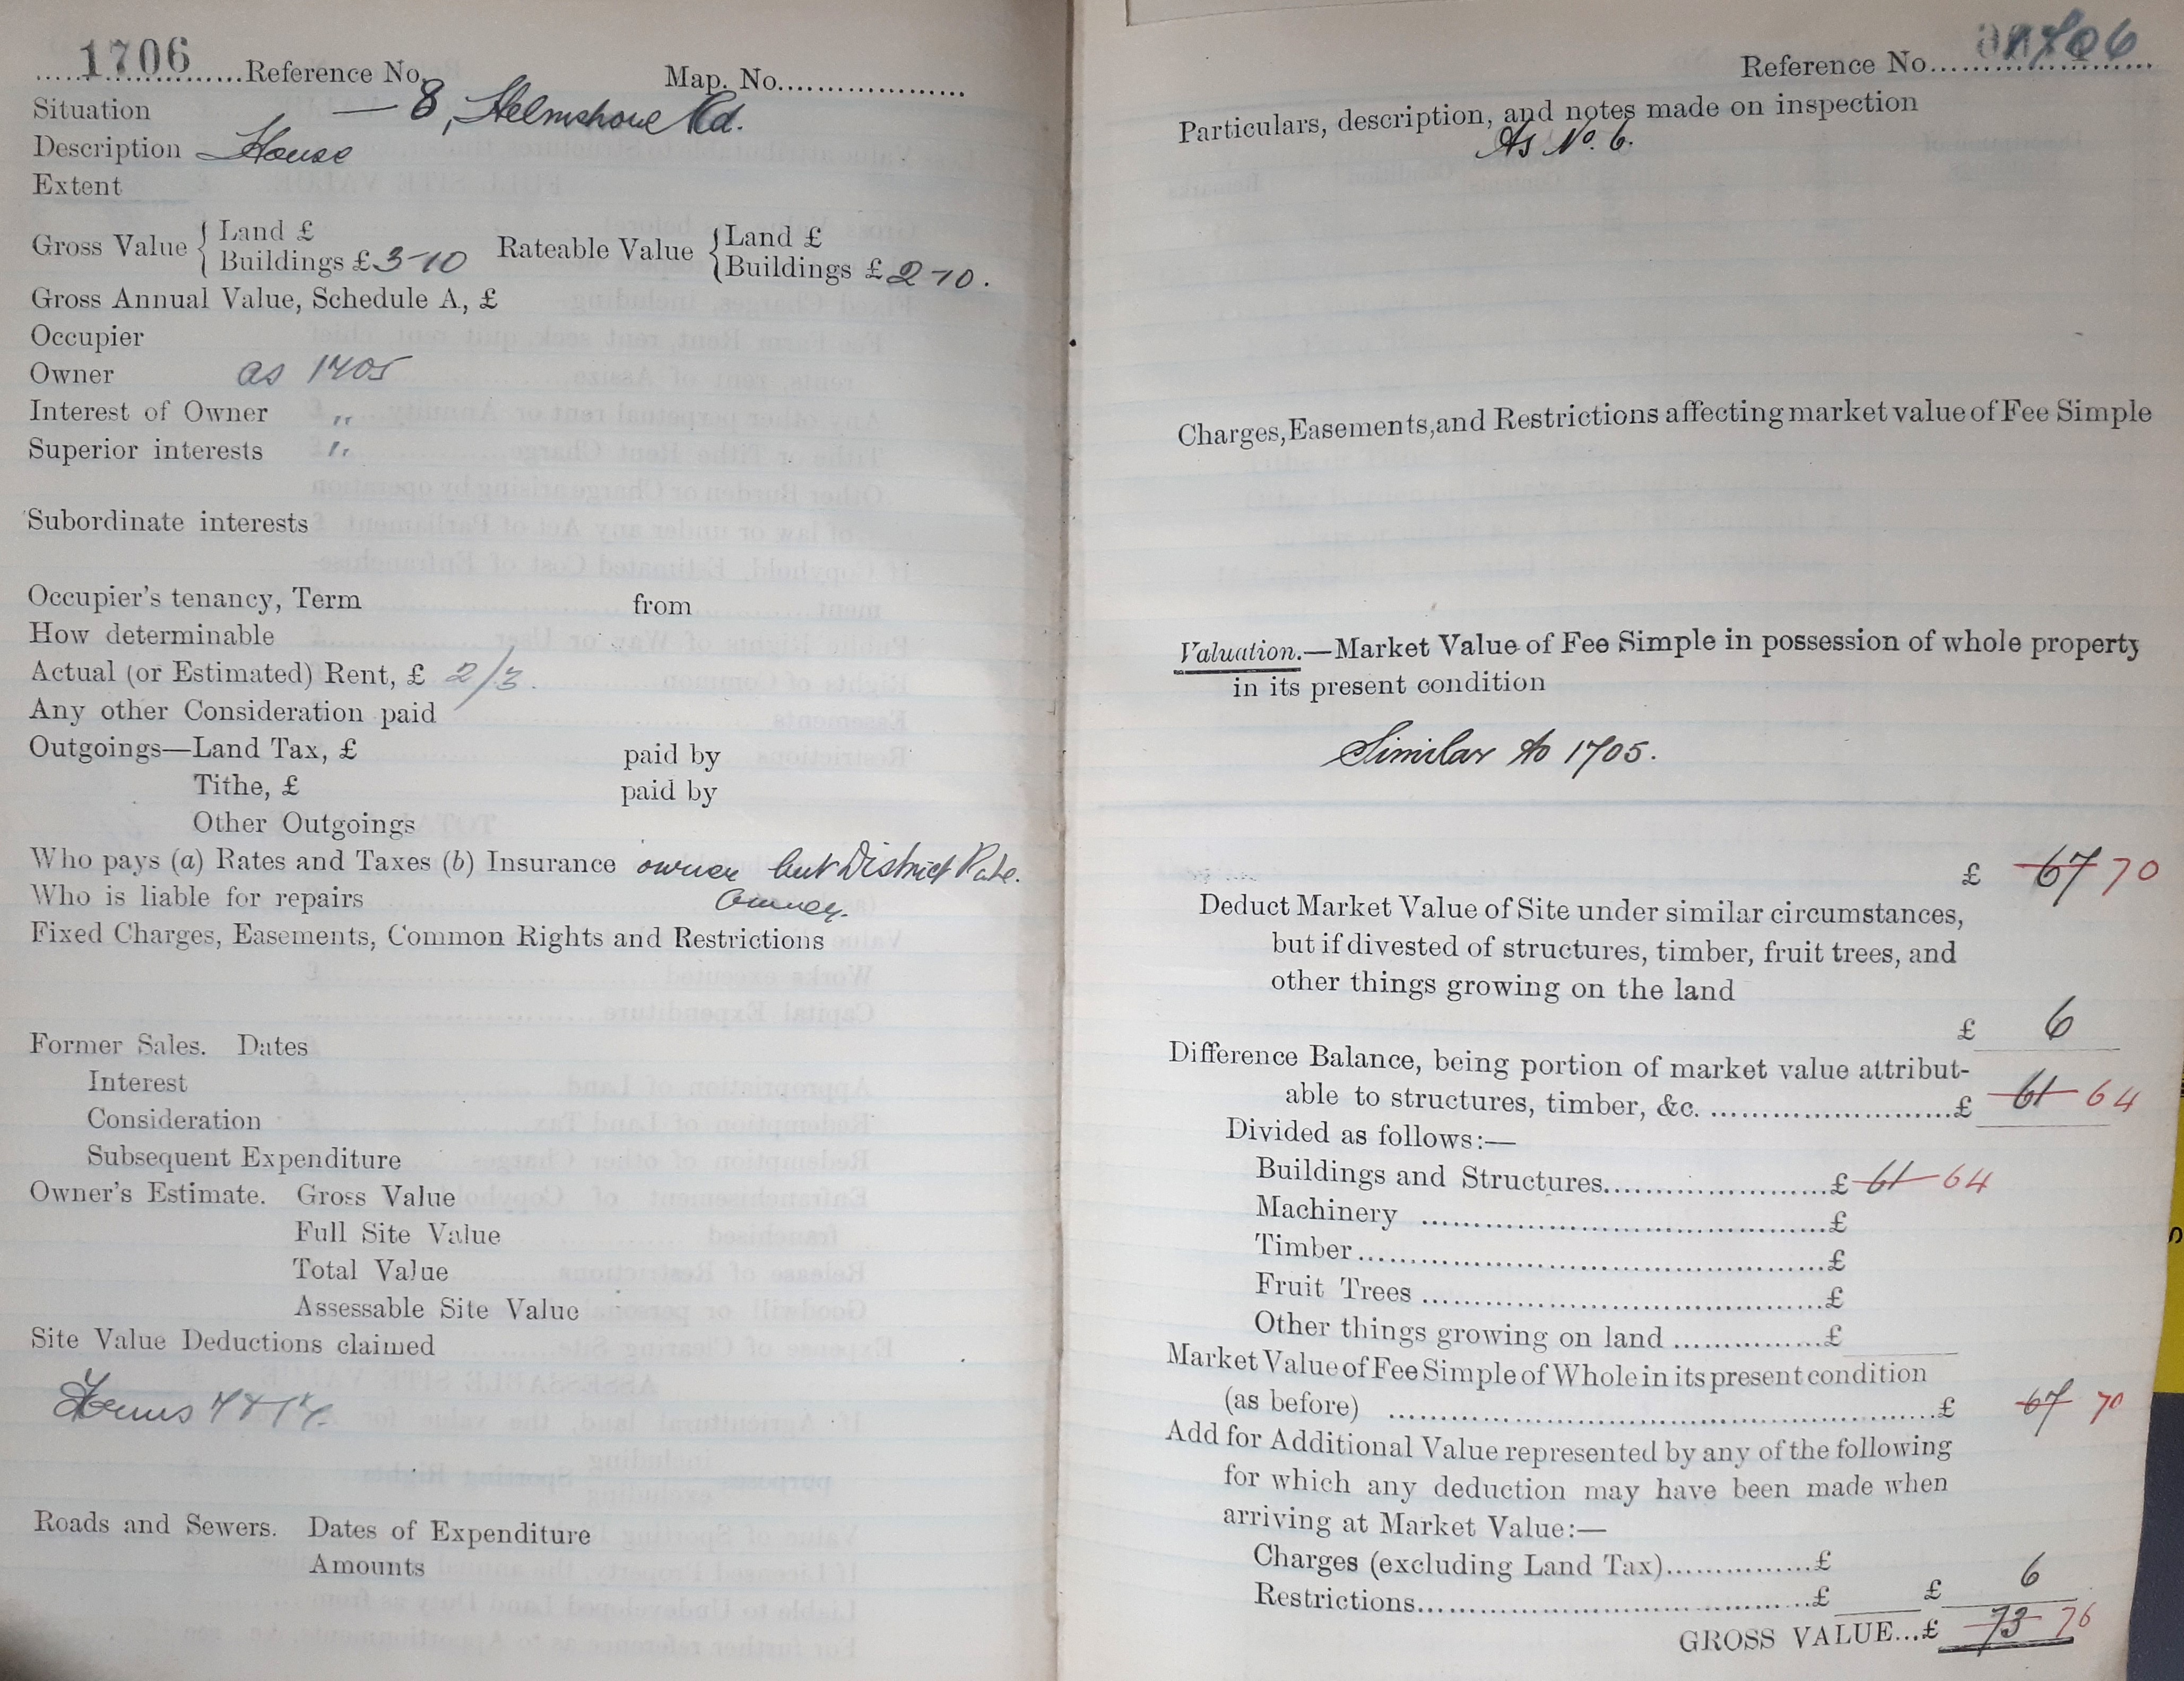 1706 Reference No. Map. No.
Situation — 8, Helmshore Rd.
Description House
Extent
Gross Value { Land £ Rateable Value { Land £
Buildings £ 3-10 Buildings £ 2-10.
Gross Annual Value, Schedule A, £
Occupier
Owner as 1705
Interest of Owner ,,
Superior interests ,,
Subordinate interests
Occupier's tenancy, Term from
How determinable
Actual (or Estimated) Rent, £ 2/3.
Any other Consideration paid
Outgoings—Land Tax, £ paid by
Tithe, £ paid by
Other Outgoings
Who pays (a) Rates and Taxes (b) Insurance owner but District Rate.
Who is liable for repairs Owner.
Fixed Charges, Easements, Common Rights and Restrictions
Former Sales. Dates
Interest
Consideration
Subsequent Expenditure
Owner's Estimate. Gross Value
Full Site Value
Total Value
Assessable Site Value
Site Value Deductions claimed
Roads and Sewers. Dates of Expenditure
Amounts
Reference No. 1706
Particulars, description, and notes made on inspection
As No. 6.
Charges, Easements, and Restrictions affecting market value of Fee Simple
Valuation.—Market Value of Fee Simple in possession of whole property
in its present condition
Similar to 1705.
£ 67 70
Deduct Market Value of Site under similar circumstances,
but if divested of structures, timber, fruit trees, and
other things growing on the land
£ 6
Difference Balance, being portion of market value attribut-
able to structures, timber, &c. £ 61 64
Divided as follows:—
Buildings and Structures £ 61 64
Machinery £
Timber £
Fruit Trees £
Other things growing on land £
Market Value of Fee Simple of Whole in its present condition
(as before) £ 67 70
Add for Additional Value represented by any of the following
for which any deduction may have been made when
arriving at Market Value:—
Charges (excluding Land Tax) £
Restrictions £ £ 6
GROSS VALUE...£ 73 76